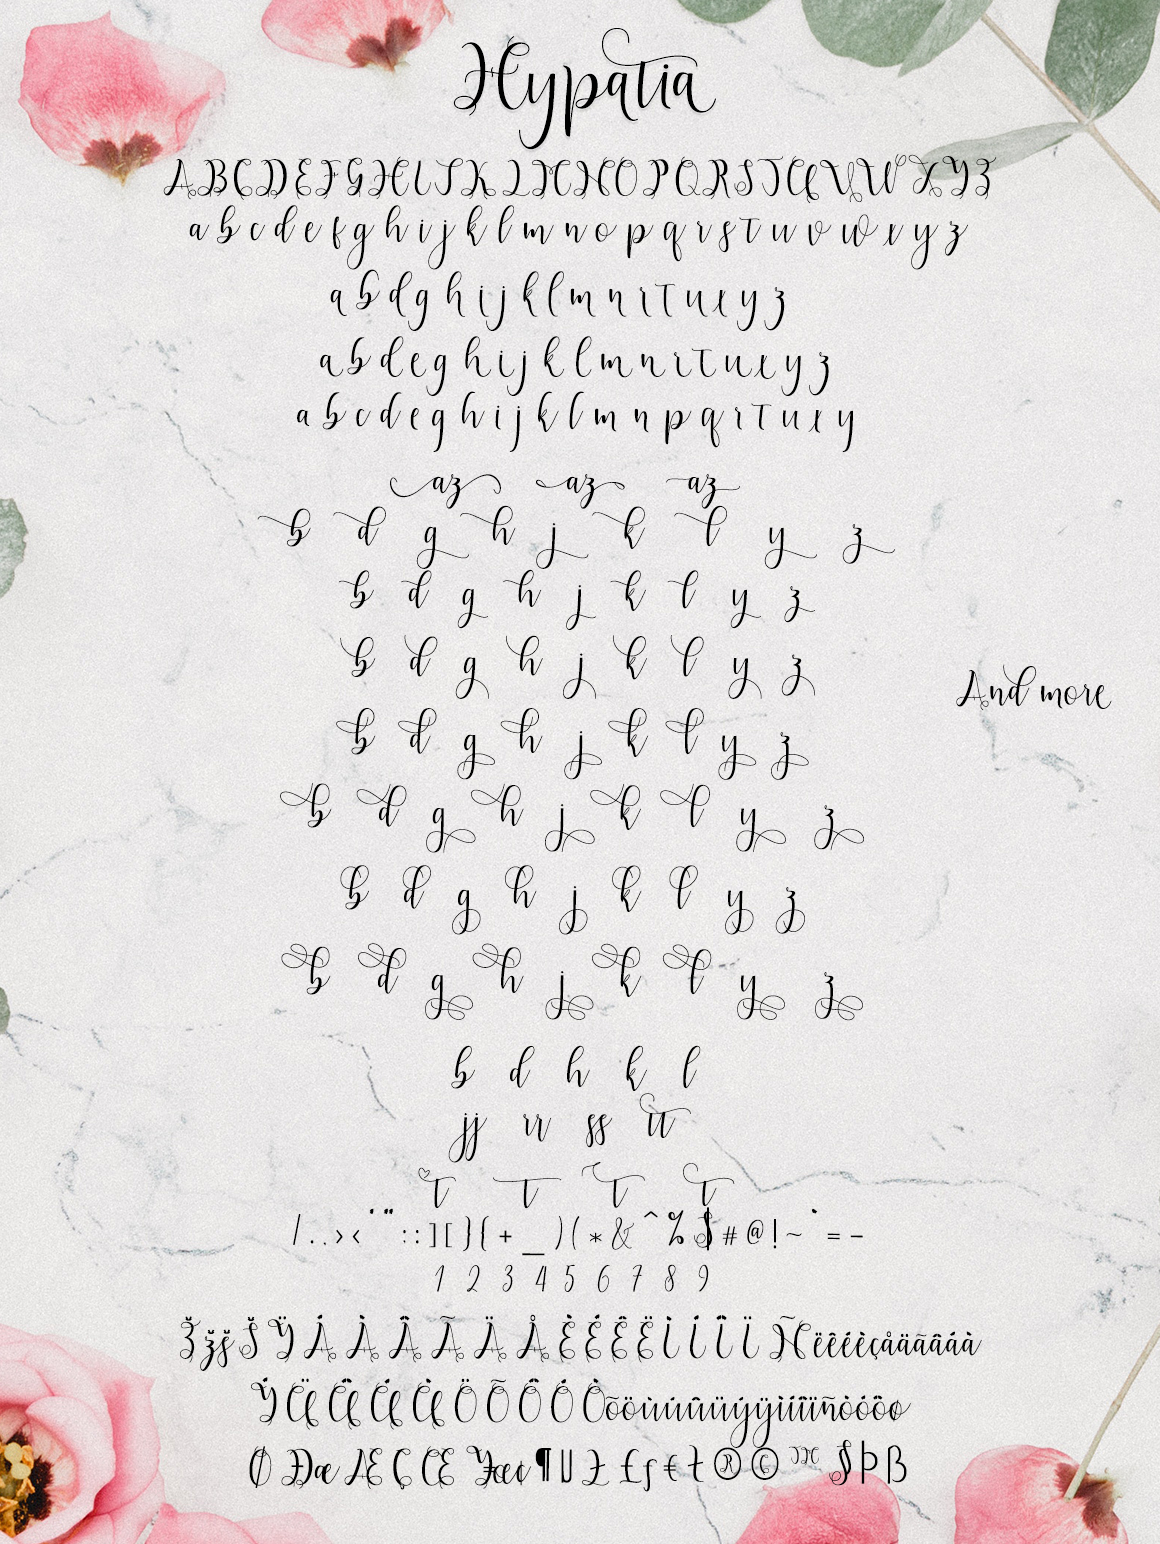 Hypatia
A B C D E F G H I J K L M N O P Q R S T U V W X Y Z
a b c d e f g h i j k l m n o p q r s t u v w x y z
a b d g h i j k l m n r t u x y z
a b d e g h i j k l m n r t u x y z
a b c d e g h i j k l m n p q r t u x y
az az az
b d g h j k l y z
b d g h j k l y z
b d g h j k l y z
And more
b d g h j k l y z
b d g h j k l y z
b d g h j k l y z
b d g h j k l y z
b d h k l
jj rr ss tt
t t t t
/ . . › ‹ ' " : : ] [ } { + _ ) ( * & ^ % $ # @ ! ~ ` = -
1 2 3 4 5 6 7 8 9
Ž ž š Š Ÿ Á À Â Ã Ä Å È É Ê Ë Ì Í Î Ï Ñ ë ê é è ç å ä ã â á à
Ý Ü Û Ú Ù Ö Õ Ô Ó Ò õ ö ù ú û ü ý ÿ ì í î ï ñ ò ó ô ø